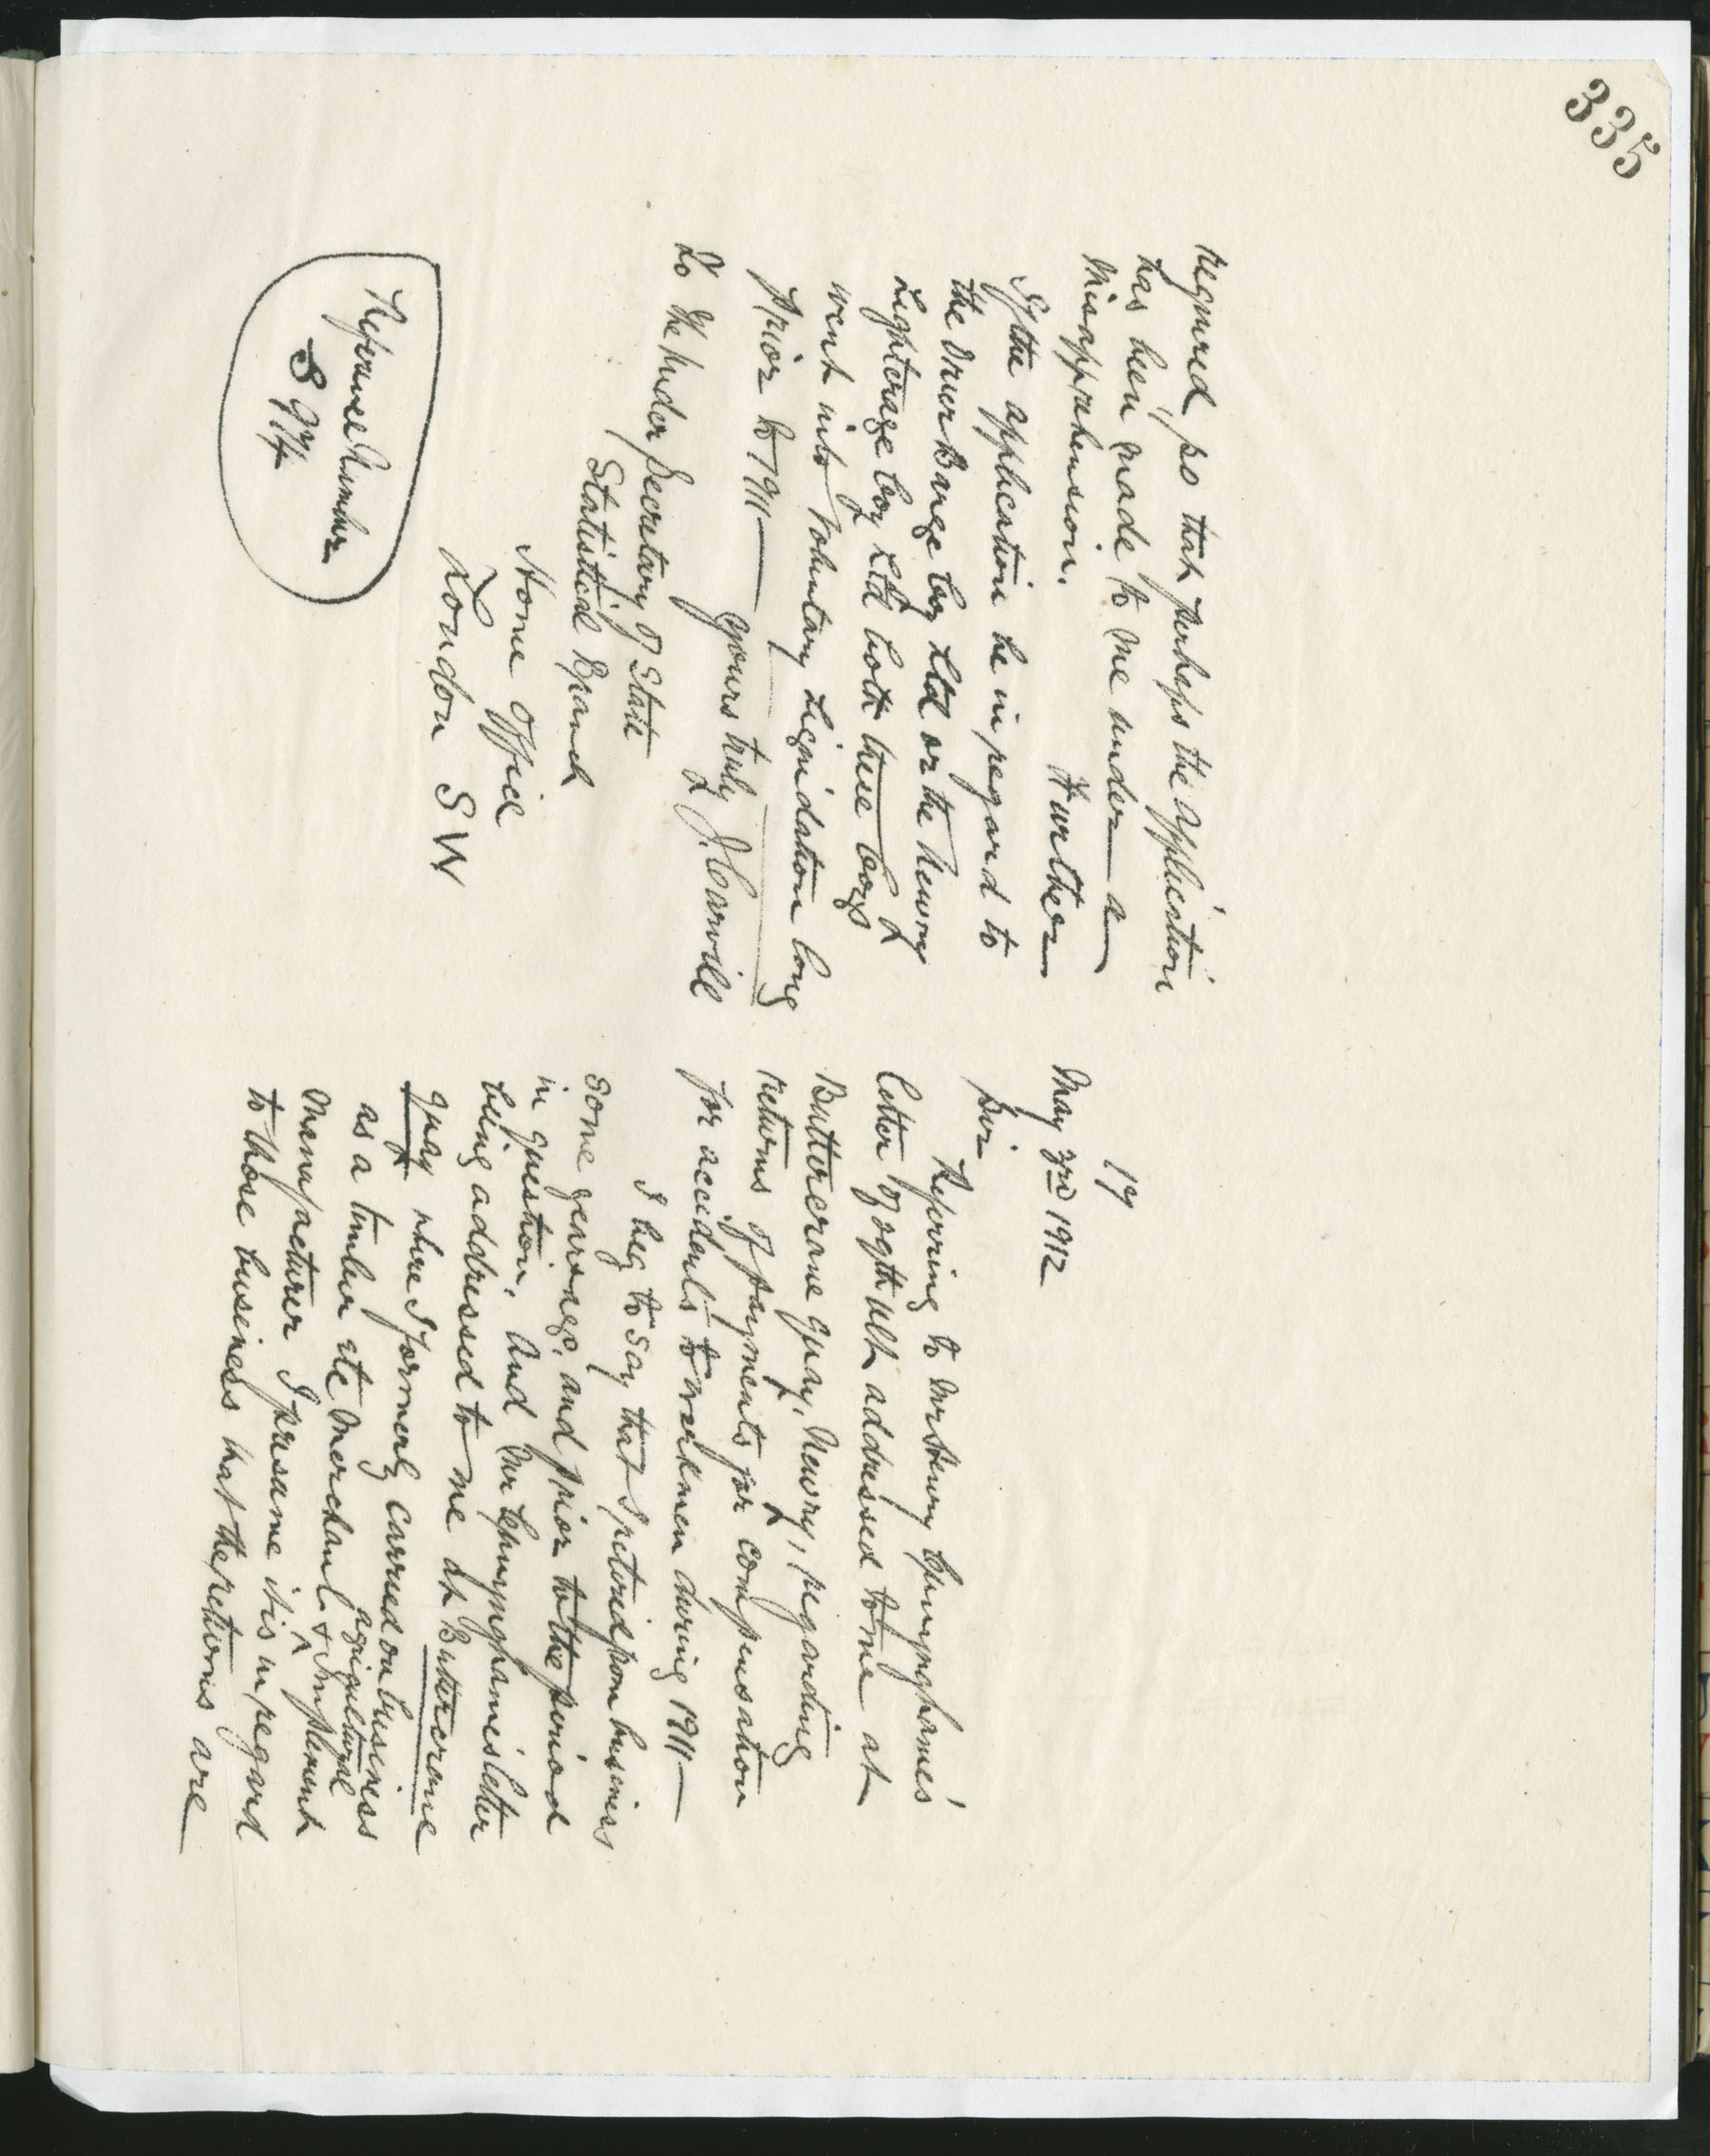 335
17
May 3rd 1912
Sir
Referring to Mr Henry Cunynghame's
letter of 29th ult addressed to me at
Buttercrane Quay, Newry, regarding
returns of payments for compensation
for accidents to workmen during 1911—
I beg to say that I retired from business
some years ago, and prior to the period
in question, and Mr Cunynghame's letter
being addressed to me at Buttercrane
Quay where I formerly carried on business
as a timber etc Merchant & agricultural Implement
Manufacturer I presume it is in regard
to those business that the returns are
required, so that perhaps the application
has been made to me under a
misapprehension.
Further
If the application be in regard to
the Barge Coy Ltd or the Newry
Lighterage Coy Ltd both these Coys
went into Voluntary Liquidation long
prior to 1911— Yours truly
J. Carvill
To The Under Secretary of State
Statistical Branch
Home Office
London SW
Reference Number
S 974